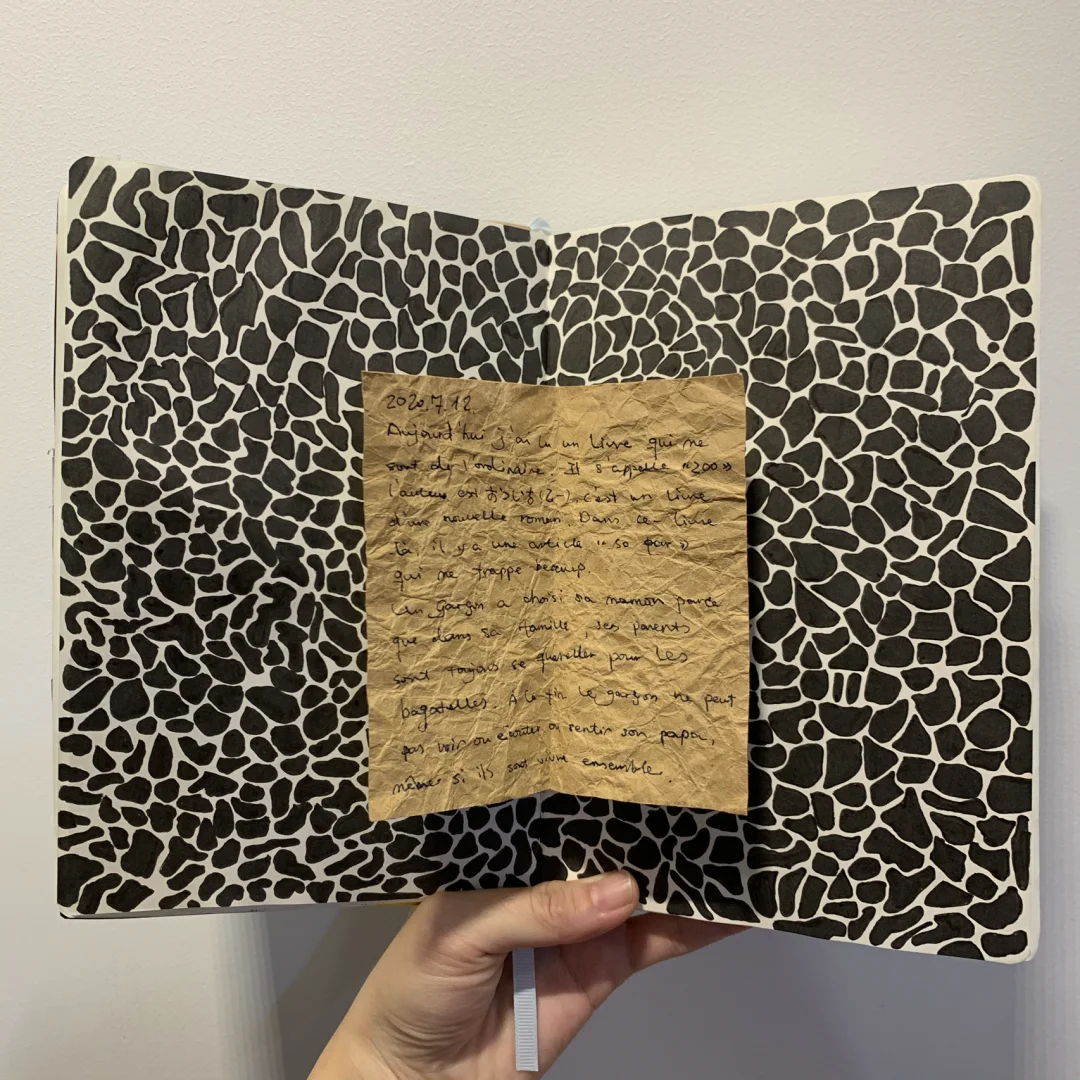 2020.7.12.
Aujourd'hui j'ai lu un livre qui ne
sont de l'ordinaire. Il s'appelle «200»
l'auteur est おつじ c'est un livre
d'une nouvelle roman. Dans ce livre
là, il y a une article « so far »
qui me frappe beaucup.
Un garçon a choisi sa maman parce
que dans sa famille, ses parents
sont toujours se quereller pour les
bagatelles. A la fin le garçon ne peut
pas voir ou ecouter ou sentir son papa,
même si ils sont vivre ensemble.